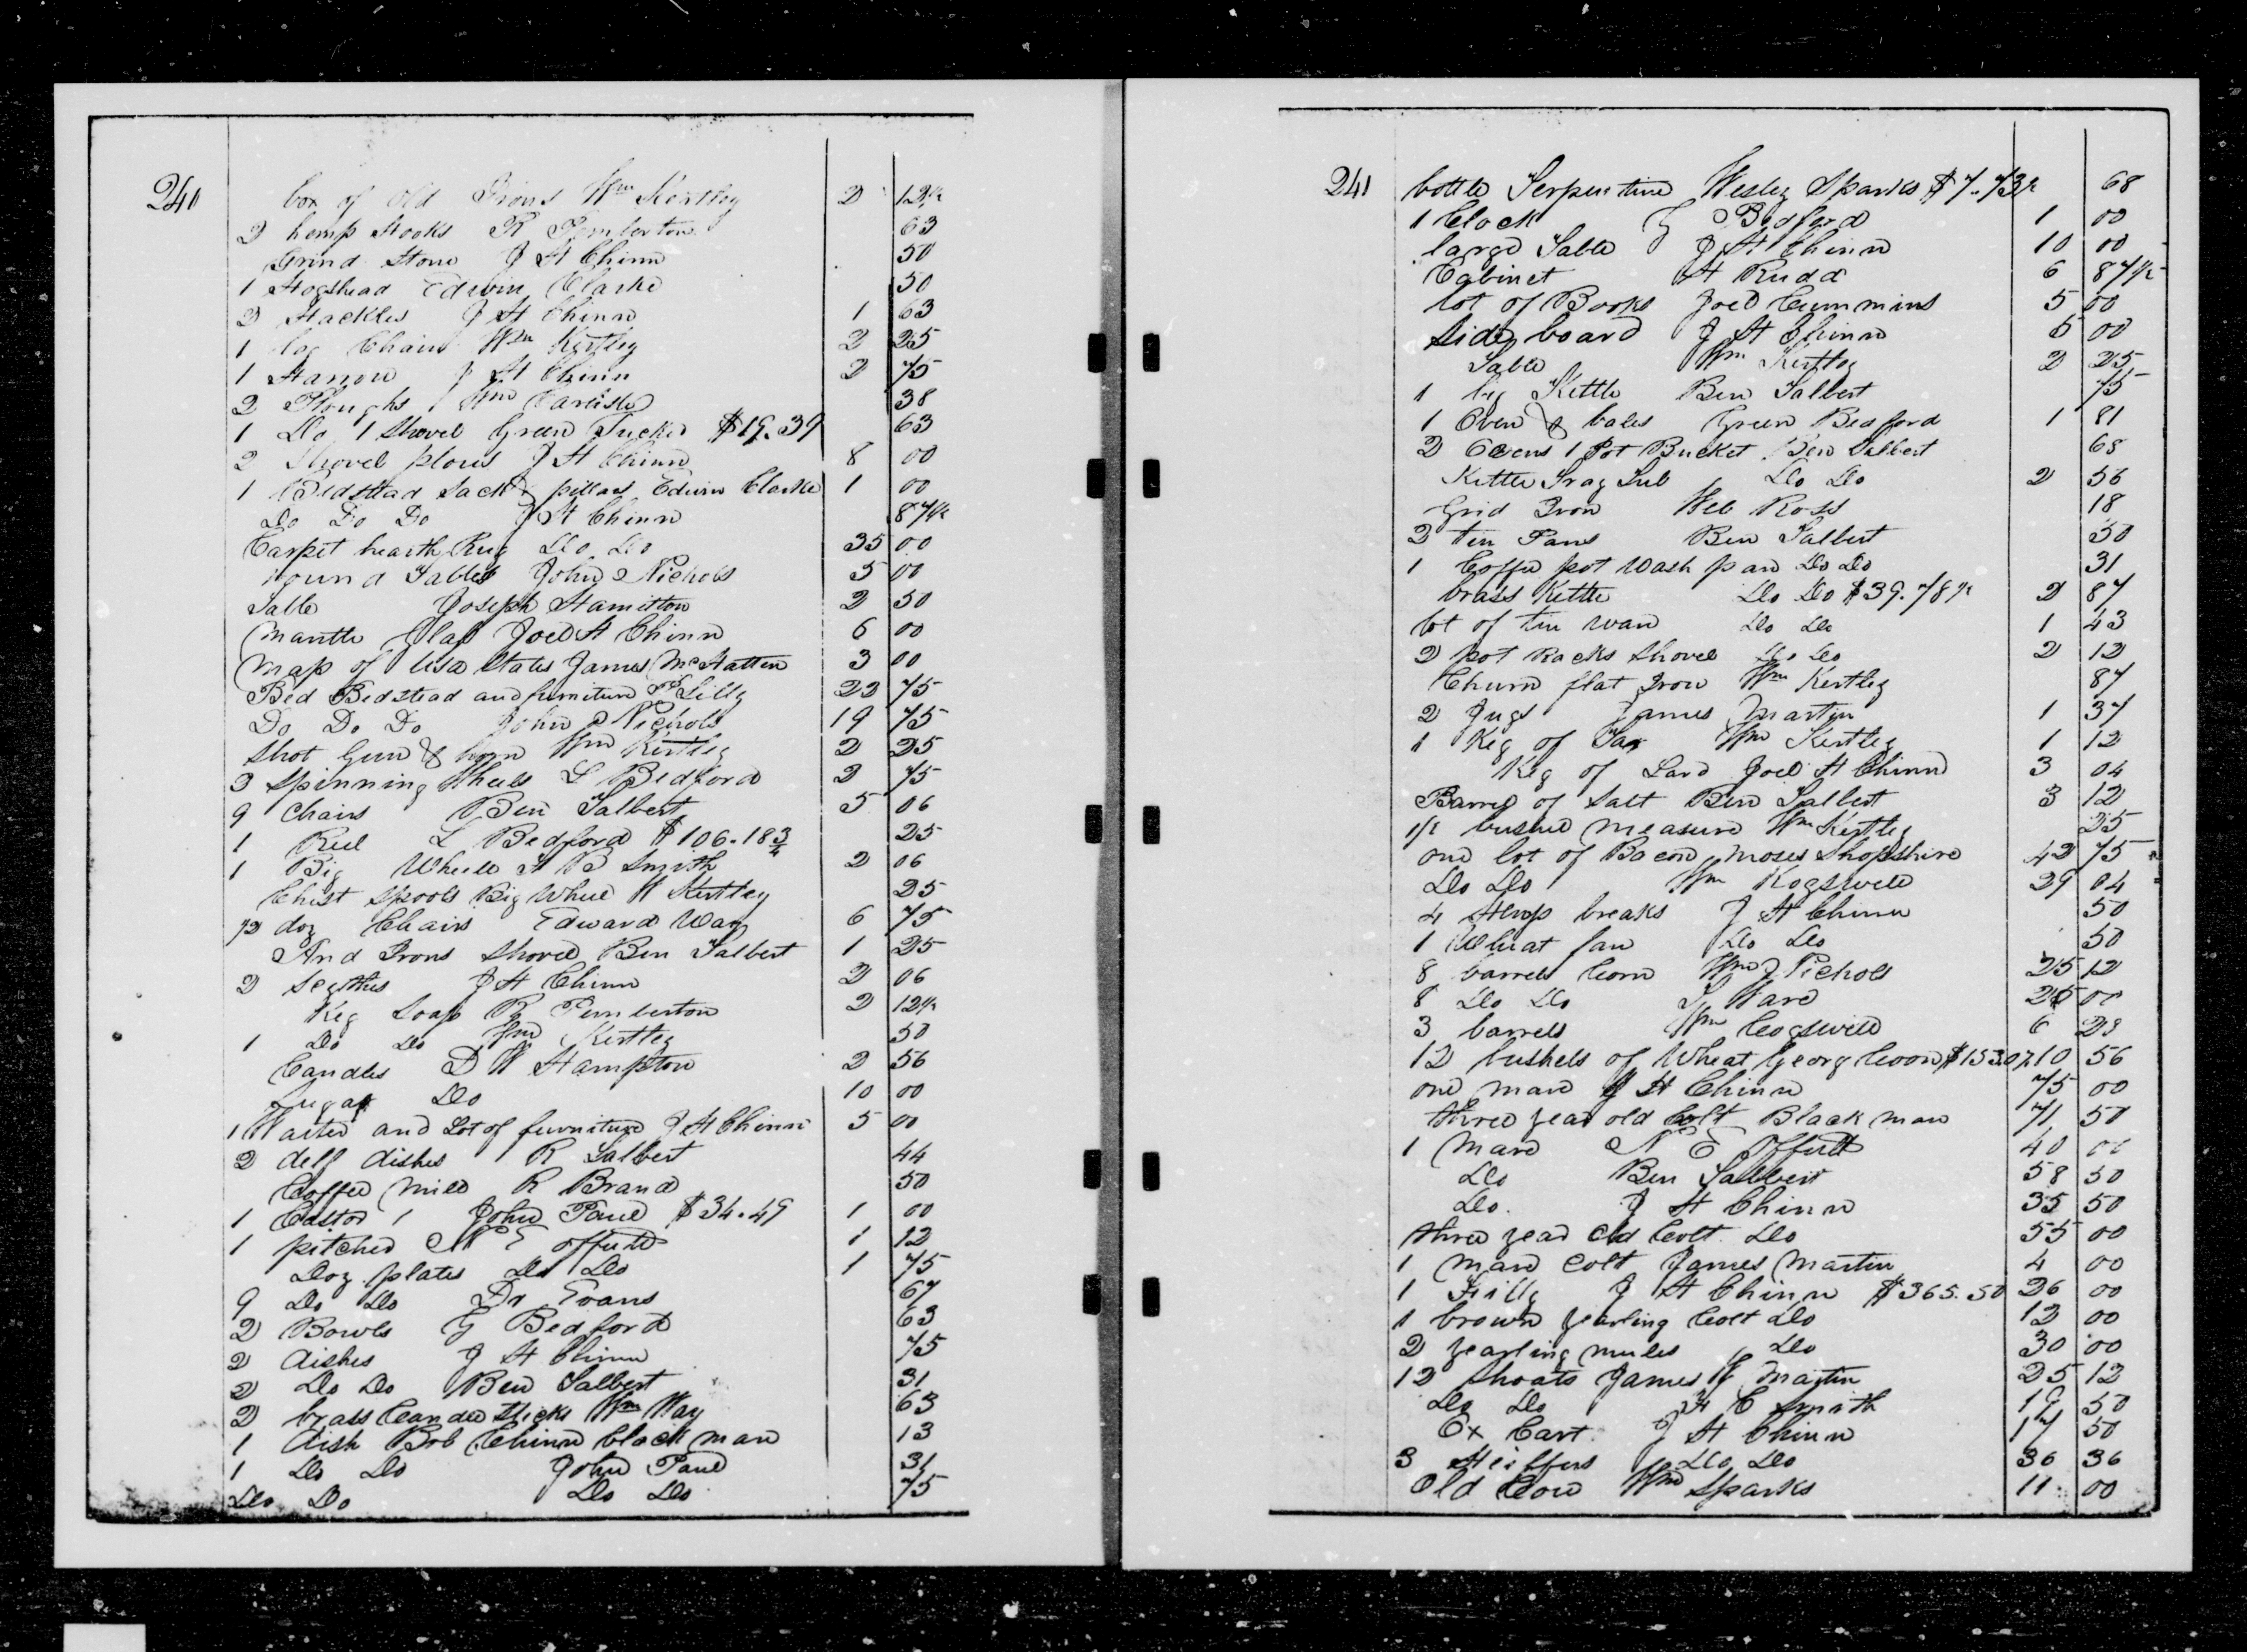 240 box of old Irons Wm Kertley 2 12½
2 hemp Hooks R Pemberton 63
Grind Stone J H Chinn 50
1 Hogshead Edwin Clarke 50
2 Hackles J H Chinn 1 63
1 log Chain Wm Kertley 2 25
1 Harrow J H Chinn 2 75
2 Ploughs Wm Carlisle 38
1 Do 1 Shovel Green Tucker $19.39 63
2 Shovel plows J H Chinn 8 00
1 Bedstead Sack & pillars Edwin Clarke 1 00
Do Do Do J H Chinn 87½
Carpet hearth Rug Do Do 35 00
round Tables John Nichols 5 00
Table Joseph Hamilton 2 50
Mantle glass Joel H Chinn 6 00
Map of Usa States James McHatten 3 00
Bed Bedstead and furniture P Lilly 22 75
Do Do Do John Nichols 19 75
Shot Gun & horn Wm Kertley 2 25
3 Spinning Wheels L Bedford 2 75
9 Chairs Ben Talbert 5 06
1 Reel L Bedford $106.18¾ 25
1 Big Wheele H B Smith 2 06
Chist Spools Big Wheel W Kertley 25
½ doz Chairs Edward Way 6 75
And Irons Shovel Ben Talbert 1 25
2 Scythes J H Chinn 2 06
Keg Soap R Pemberton 2 12½
1 Do Do Wm Kertley 50
Candles D W Hampton 2 56
Sugar Do 10 00
1 Waiter and Lot of furniture J H Chinn 5 00
2 delf dishes R Talbert 44
Coffee Mill R Brand 50
1 Castor 1 John Paul $34.49 1 00
1 pitcher N E offutt 1 12
Doz plates Do Do 1 75
9 Do Do Dr Evans 67
2 Bowls G Bedford 63
2 dishes J H Chinn 75
2 Do Do Ben Talbert 31
2 brass Candle Sticks Wm Way 63
1 dish Bob Chinn black man 13
1 Do Do John Paul 31
Do Do Do Do 75
241 bottle Serpentine Wesley Sparks $7.73½ 68
1 Clock G Bedford 1 00
large Table J H Chinn 10 00
Cabinet H Rudd 6 87½
lot of Books Joel Cummins 5 00
Side board J H Chinn 5 00
Table Wm Kertley 2 25
1 big Kettle Ben Talbert 75
1 Oven & bales Green Bedford 1 81
2 Ovens 1 Pot Bucket Ben Talbert 68
Kettle Tub Do Do 2 56
Grid Iron Web Ross 18
2 tin Pans Ben Talbert 50
1 Coffee pot Wash pan Do Do 31
brass Kettle Do Do $39.78½ 2 87
lot of tin ware Do Do 1 43
2 pot Racks Shovel Do Do 2 12
Churn flat Iron Wm Kertley 87
2 Jugs James Martin 1 37
1 Keg of Tar Wm Kertley 1 12
Keg of Lard Joel H Chinn 3 04
Barrel of Salt Ben Talbert 3 12
½ bushel measure Wm Kertley 25
one lot of Bacon Moses Shopshire 42 75
Do Do Wm Kogswell 29 04
4 Hemp breaks J H Chinn 50
1 Wheat fan Do Do 50
8 barrels Corn Wm Nichols 25 12
8 Do Do Ward 25 00
3 barrels Wm Cogswell 6 23
12 bushels of Wheat Georg Coon $153.07 10 56
one mare J H Chinn 75 00
three year old Colt Black man 71 50
1 Mare N E Offutt 40 00
Do Ben Talbert 58 50
Do J H Chinn 35 50
three year old Colt Do 55 00
1 mare Colt James Martin 4 00
1 Filly J H Chinn $365.50 26 00
1 brown yearling Colt Do 12 00
2 yearling mules Do 30 00
12 Shoats James Martin 25 12
Do Do H C Smith 19 50
Ox Cart J H Chinn 17 50
3 Heiffers Do Do 36 36
Old Cow Wm Sparks 11 00